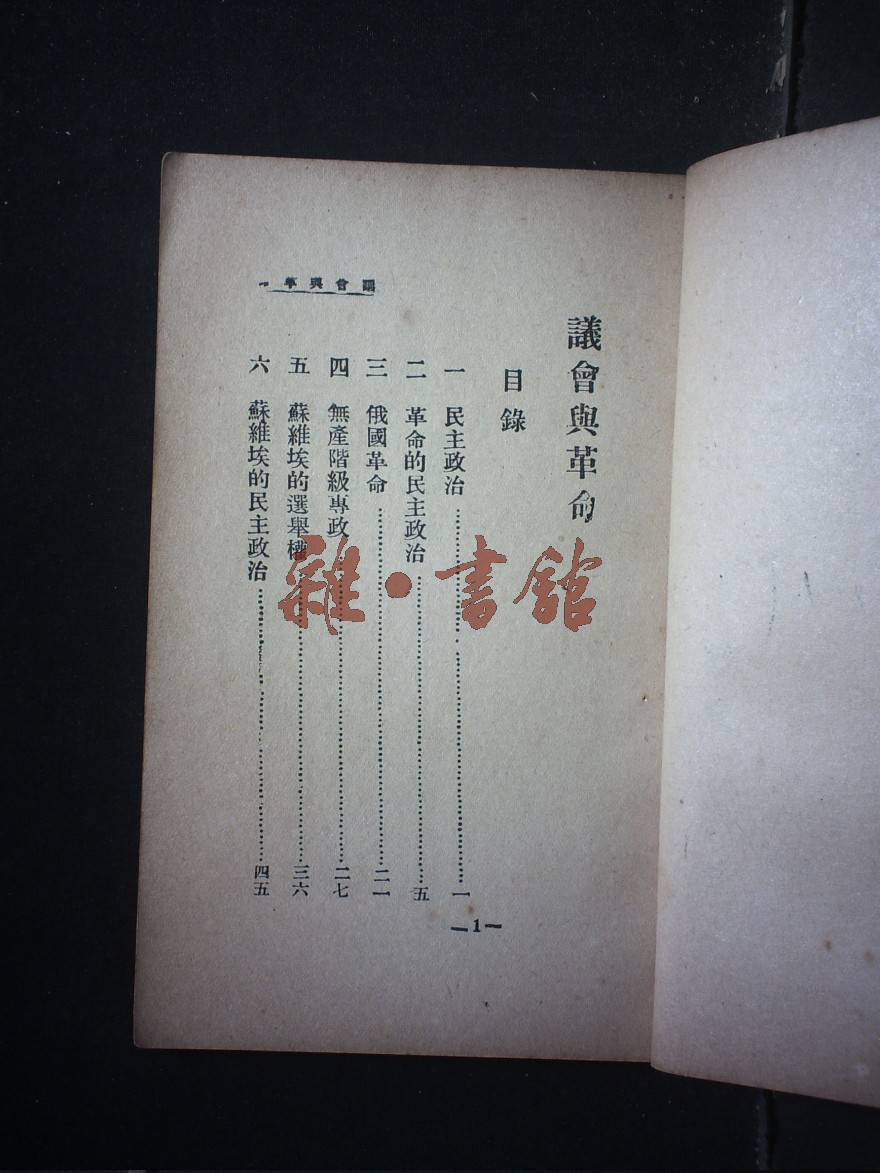 議會與革命
目錄
一 民主政治 一
二 革命的民主政治 五
三 俄國革命 二一
四 無產階級專政 二七
五 蘇維埃的選舉權 三六
六 蘇維埃的民主政治 四五
議會與革
—1—
雜·書館